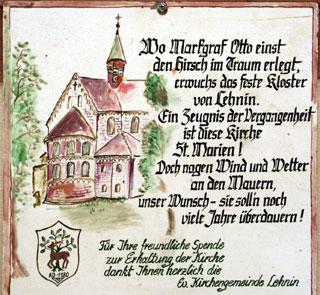 Wo Markgraf Otto einst
den Hirsch im Traum erlegt,
erwuchs das feste Kloster
von Lehnin.
Ein Zeugnis der Vergangenheit
ist diese Kirche
St. Marien!
Doch nagen Wind und Wetter
an den Mauern,
unser Wunsch - sie soll'n noch
viele Jahre überdauern!
Für Ihre freundliche Spende
zur Erhaltung der Kirche
dankt Ihnen herzlich die
Ev. Kirchengemeinde Lehnin